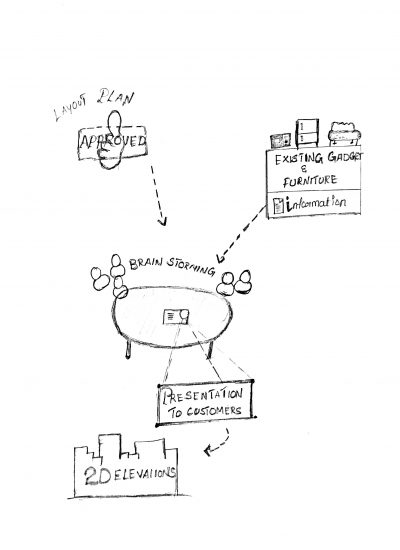 LAYOUT PLAN
APPROVED
EXISTING GADGET
&
FURNITURE
information
BRAIN STORMING
PRESENTATION
TO CUSTOMERS
2D ELEVATIONS